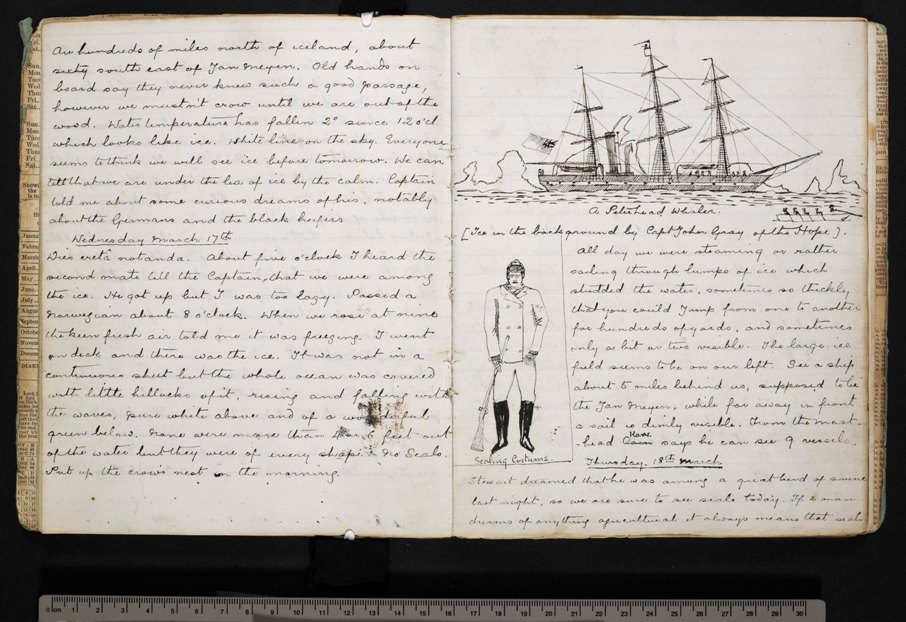 Are hundreds of miles north of iceland, about
sixty south east of Jan Meyen. Old hands on
board say they never knew such a good passage,
however we mustn't crow until we are out of the
wood. Water temperature has fallen 2° since 12 o'cl
which looks like ice. White line on the sky. Everyone
seems to think we will see ice before tomorrow. We can
tell that we are under the lea of ice by the calm. Captain
told me about some curious dreams of his, notably
about the Germans and the black heifers
Wednesday March 17th
Dies creta notanda. About five o'cluck I heard the
second mate tell the Captain, that we were among
the ice. He got up but I was too lazy. Passed a
Norwegian about 8 o'clock. When we rose at nine
the keen fresh air told me it was freezing. I went
on deck and there was the ice. It was not in a
continuous sheet but the whole ocean was covered
with little hillocks of it, rising and falling with
the waves, pure white above and of a wonderful
green below. None were more than feet out
of the water but they were of every shape. No Seals.
Put up the crow's nest in the morning
A Peterhead Whaler.
[Ice in the background by Capt John Gray of the Hope].
All day we were steaming or rather
sailing through lumps of ice which
studded the water, sometimes so thickly,
that you could jump from one to another
for hundreds of yards, and sometimes
only a bit or two visible. The large ice
field seems to be on our left. See a ship
about 5 miles behind us, supposed to be
the Jan Meyen, while far away in front
a sail is dimly visible. From the mast-
head Colin says he can see 9 vessels.
Sealing Costume.
Thursday 18th March
Stewart dreamed that he was among a great herd of swine
last night, so we are sure to see seals today. If a man
dreams of anything agricultural it always means that seals
Sun.
Mon
Tues
Wed
Thu
Fri..
Sat..
Janua
Febru
March
April
May
June
July
Augus
Septem
Octobe
Novem
Decem
DIARY
0 cm 1 2 3 4 5 6 7 8 9 10 11 12 13 14 15 16 17 18 19 20 21 22 23 24 25 26 27 28 29 30